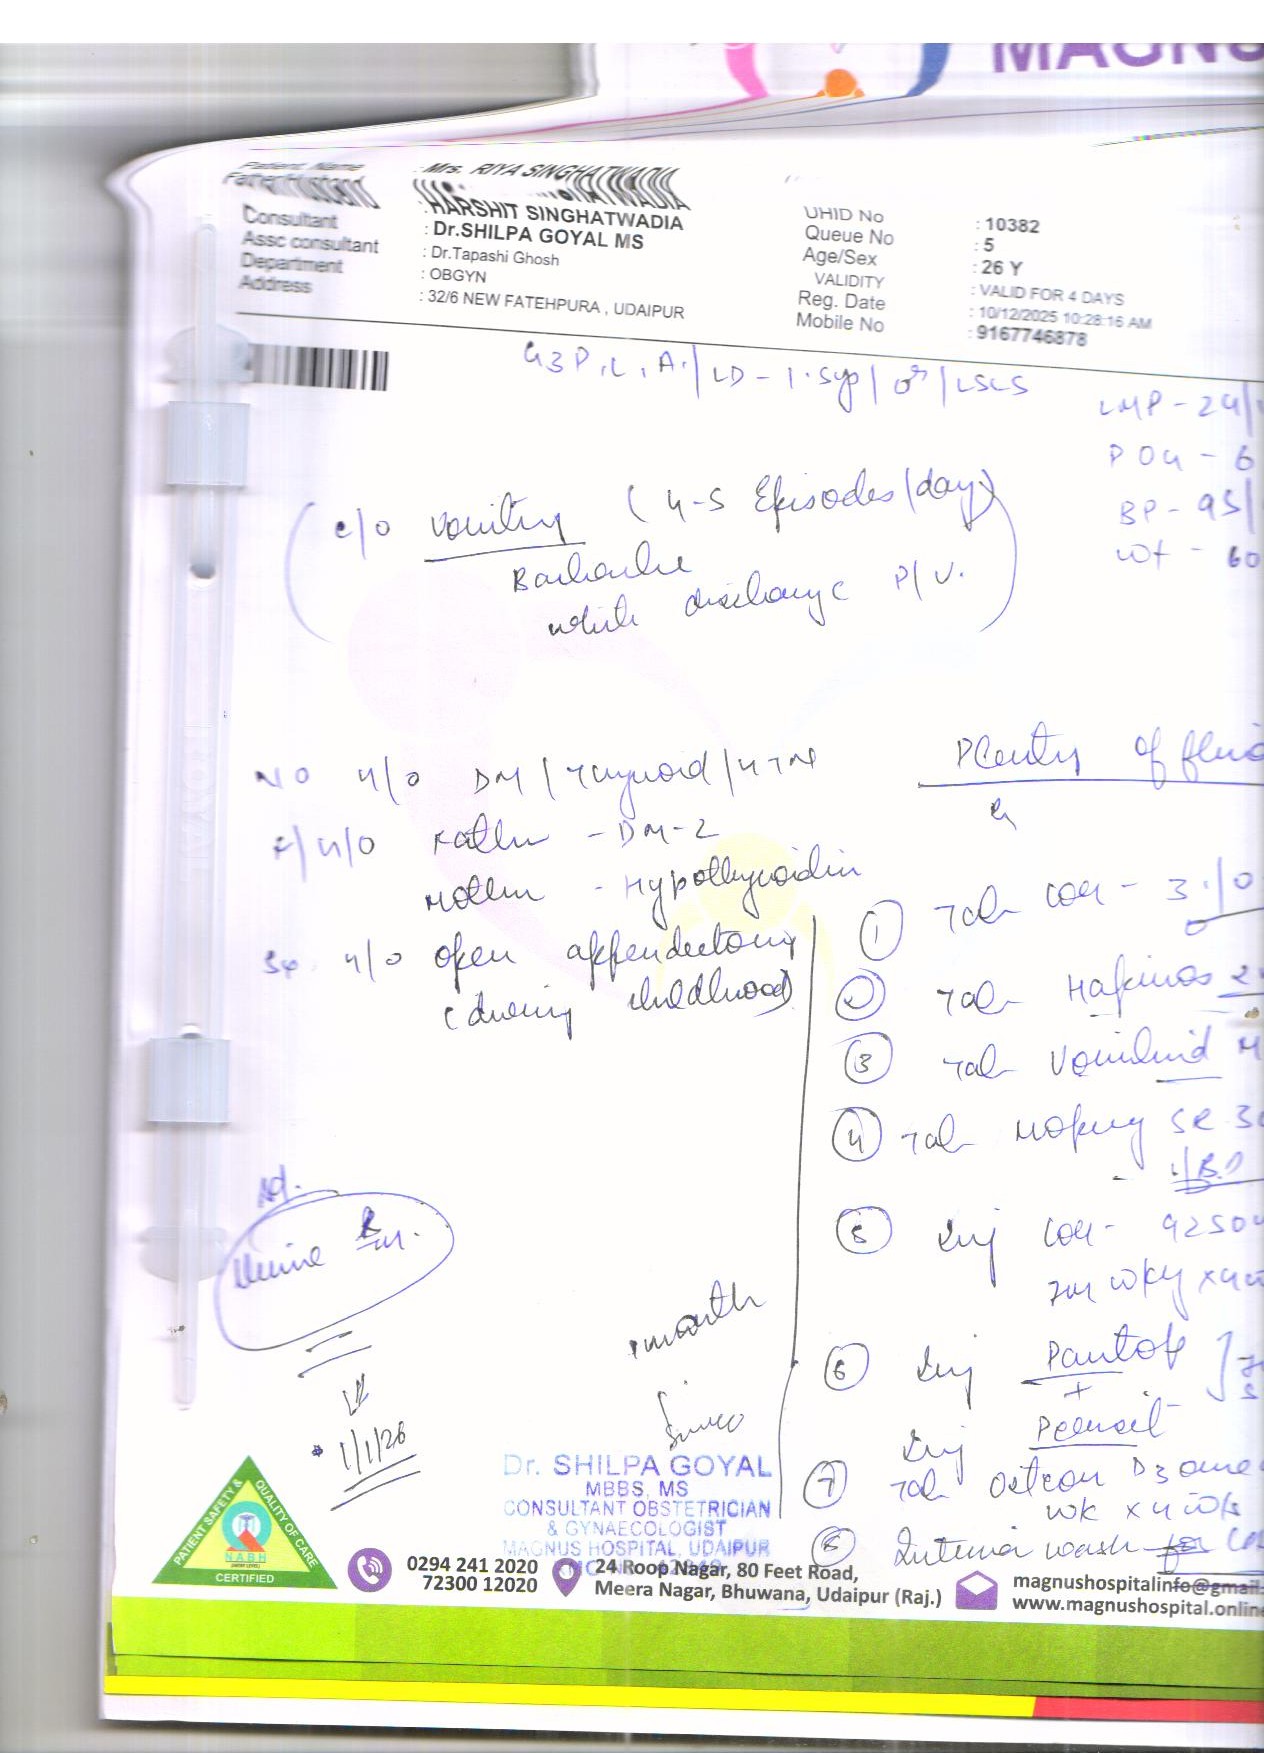 MAGNU
Patient Name : Mrs. RIYA SINGHATWADIA
Father/Husband
: HARSHIT SINGHATWADIA
Consultant : Dr.SHILPA GOYAL MS
Assc consultant : Dr.Tapashi Ghosh
Department : OBGYN
Address : 32/6 NEW FATEHPURA , UDAIPUR
UHID No : 10382
Queue No : 5
Age/Sex : 26 Y
VALIDITY : VALID FOR 4 DAYS
Reg. Date : 10/12/2025 10:28:16 AM
Mobile No : 9167746878
G3P1L1A1/LD-1.5yp/♂/LSCS
LMP - 24/
POG - 6
BP - 95/
wt - 60
c/o vomiting (4-5 Episodes/day)
Backache
white discharge P/V.
NO H/O DM/Thyroid/HTN
F/H/O Father - DM-2
Mother - Hypothyroidism
Sx. H/O open appendectomy
(during childhood)
Plenty of fluid
①
Tab
3
② Tab
③ Tab Vomikind M
④ Tab SR 30
1/BD
⑤ Inj
wkly x 4
⑥ Inj Pantop
+
Inj
⑦ Tab D3 once
wk x 4 wks
⑧ wash
Ad.
Urine R/M.
1 month
1/1/26
Dr. SHILPA GOYAL
MBBS, MS
CONSULTANT OBSTETRICIAN
& GYNAECOLOGIST
MAGNUS HOSPITAL, UDAIPUR
PATIENT SAFETY & QUALITY OF CARE
N.A.B.H
CERTIFIED
0294 241 2020
72300 12020
24 Roop Nagar, 80 Feet Road,
Meera Nagar, Bhuwana, Udaipur (Raj.)
magnushospitalinfo@gmail.
www.magnushospital.online